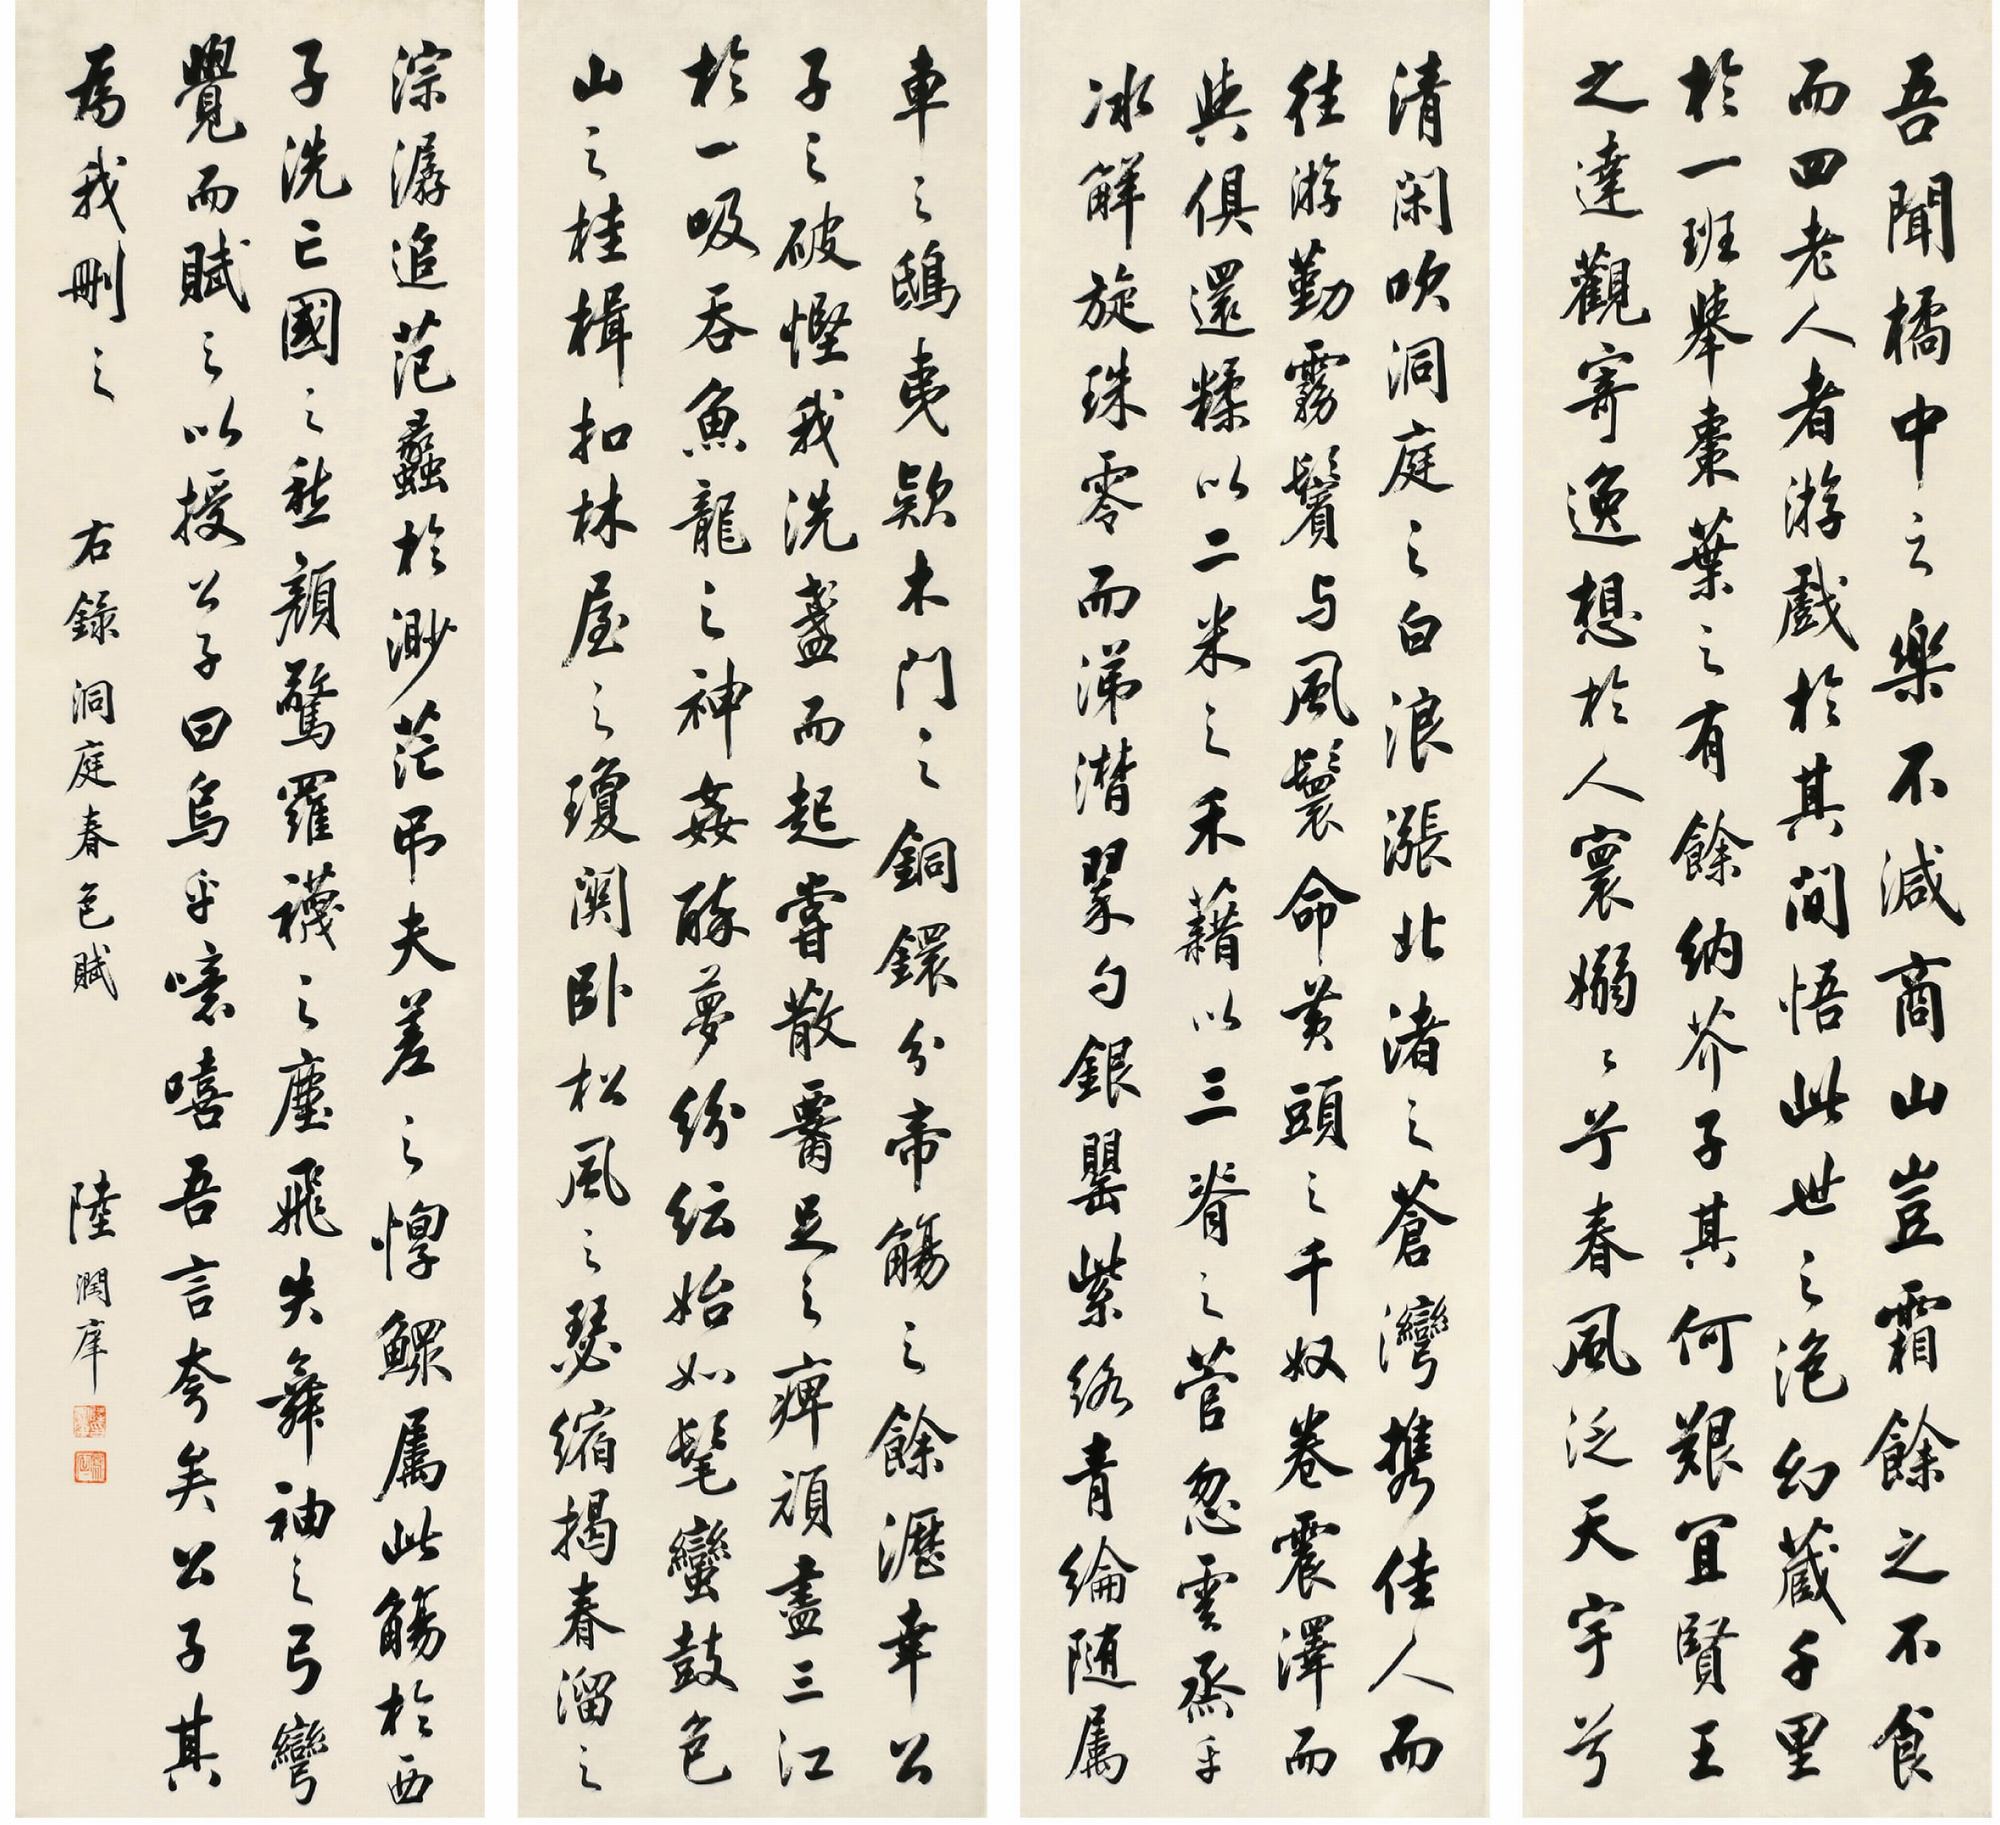 吾聞橘中之樂不減商山豈霜餘之不食
而四老人者游戲於其間悟此世之泡幻藏千里
於一班舉棗葉之有餘納芥子其何艱宜賢王
之達觀寄逸想於人寰嫋〻兮春風泛天宇兮
清閑吹洞庭之白浪漲北渚之蒼灣携佳人而
往游勤霧鬢与風鬟命黄頭之千奴卷震澤而
與俱還糅以二米之禾藉以三脊之菅忽雲烝乎
冰解旋珠零而涕潸翠勺銀罌紫絡青綸随属
車之鴟夷欵木門之銅鐶分帝觴之餘瀝幸公
子之破慳我洗盞而起嘗散腰足之痺頑盡三江
於一吸吞魚龍之神姦醉夢紛紜始如髦蠻鼓包
山之桂楫扣林屋之瓊関卧松風之瑟縮揭春溜之
淙潺追范蠡於渺茫弔夫差之惸鰥属此觴於西
子洗亡國之愁顔驚羅襪之塵飛失舞袖之弓彎
覺而賦之以授公子曰烏乎噫嘻吾言夸矣公子其
爲我刪之
右錄洞庭春色賦
陸潤庠